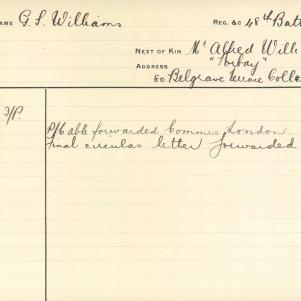 AME G. S. Williams
REG. &C 48th Batt
NEXT OF KIN Mr Alfred Will
ADDRESS "Torbay"
80 Belgrave Terrace Coll
3/P.
able forwarded Commrs London.
Final circular letter forwarded